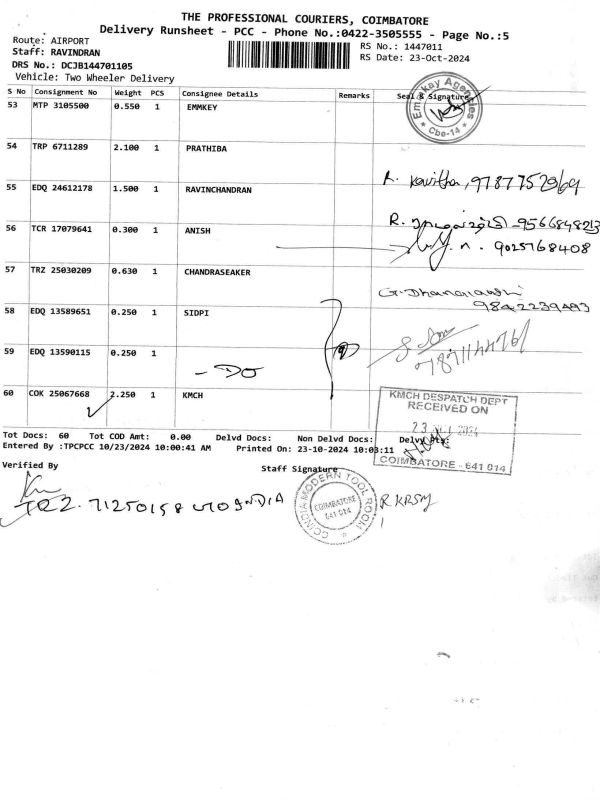 THE PROFESSIONAL COURIERS, COIMBATORE
Delivery Runsheet - PCC - Phone No.:0422-3505555 - Page No.:5
Route: AIRPORT
RS No.: 1447011
Staff: RAVINDRAN
RS Date: 23-Oct-2024
DRS No.: DCJB144701105
Vehicle: Two Wheeler Delivery
S No Consignment No Weight PCS Consignee Details Remarks Seal & Signature
53 MTP 3105500 0.550 1 EMMKEY
Emmkay Agencies
* Cbe-14 *
54 TRP 6711289 2.100 1 PRATHIBA
R. Kavitha, 9787752969
55 EDQ 24612178 1.500 1 RAVINCHANDRAN
R. -9566848213
56 TCR 17079641 0.300 1 ANISH
9025768408
57 TRZ 25030209 0.630 1 CHANDRASEAKER
G. 9842239493
58 EDQ 13589651 0.250 1 SIDPI
59 EDQ 13590115 0.250 1
- DO
7871144761
60 COK 25067668 2.250 1 KMCH
KMCH DESPATCH DEPT
RECEIVED ON
23 2024
COIMBATORE - 641 014
Tot Docs: 60 Tot COD Amt: 0.00 Delvd Docs: Non Delvd Docs: Delvy
Entered By :TPCPCC 10/23/2024 10:00:41 AM Printed On: 23-10-2024 10:03:11
Verified By
Staff Signature
71250158 INDIA
COINDIA MODERN TOOL ROOM
COIMBATORE
641 014